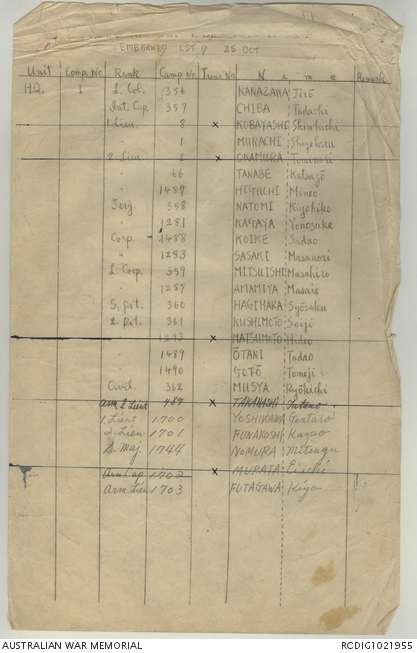 EMBARKED LST 9 25 OCT
Unit Comp. No Rank Camp. No Trans No Name Remark
HQ. 1 L. Col. 356 KANAZAWA Jirō
Int. Cap. 357 CHIBA Tadashi
1 Lieu. 8 x KOBAYASHI Shinkichi
" 1 MURACHI Shigeharu
2 Lieu. 2 x OKAMURA Tominori
" 66 TANABE Katsuzō
" 1487 HIGUCHI Mineo
Serj. 358 NATOMI Kiyohiko
" 1281 KATAYA Yonosuke
Corp. 1488 KOIKE Sadao
" 1283 SASAKI Masanori
L. Corp. 359 MITSUISHI Masahiro
" 1287 AMAMIYA Masaie
S. pvt. 360 HAGIHARA Syōsaku
1. pvt. 361 KUSHIMOTO Seiji
" 1293 x MATSUMOTO Hideo
" 1489 ŌTANI Tadao
" 1490 GOTŌ Tomeji
Civil. 362 MUSYA Ryōkichi
Arm 2 Lieut 487 x TAKAHASHI
1 Lieut 1700 YOSHIKAWA Gentarō
2 Lieu 1701 FUNAKOSHI Kazuo
S. Maj 1744 NOMURA Mitsugu
Arm Cap 1702 x MURATA Eiichi
Arm Lieu 1703 FUTAGAWA Kiyo
AUSTRALIAN WAR MEMORIAL RCDIG1021955